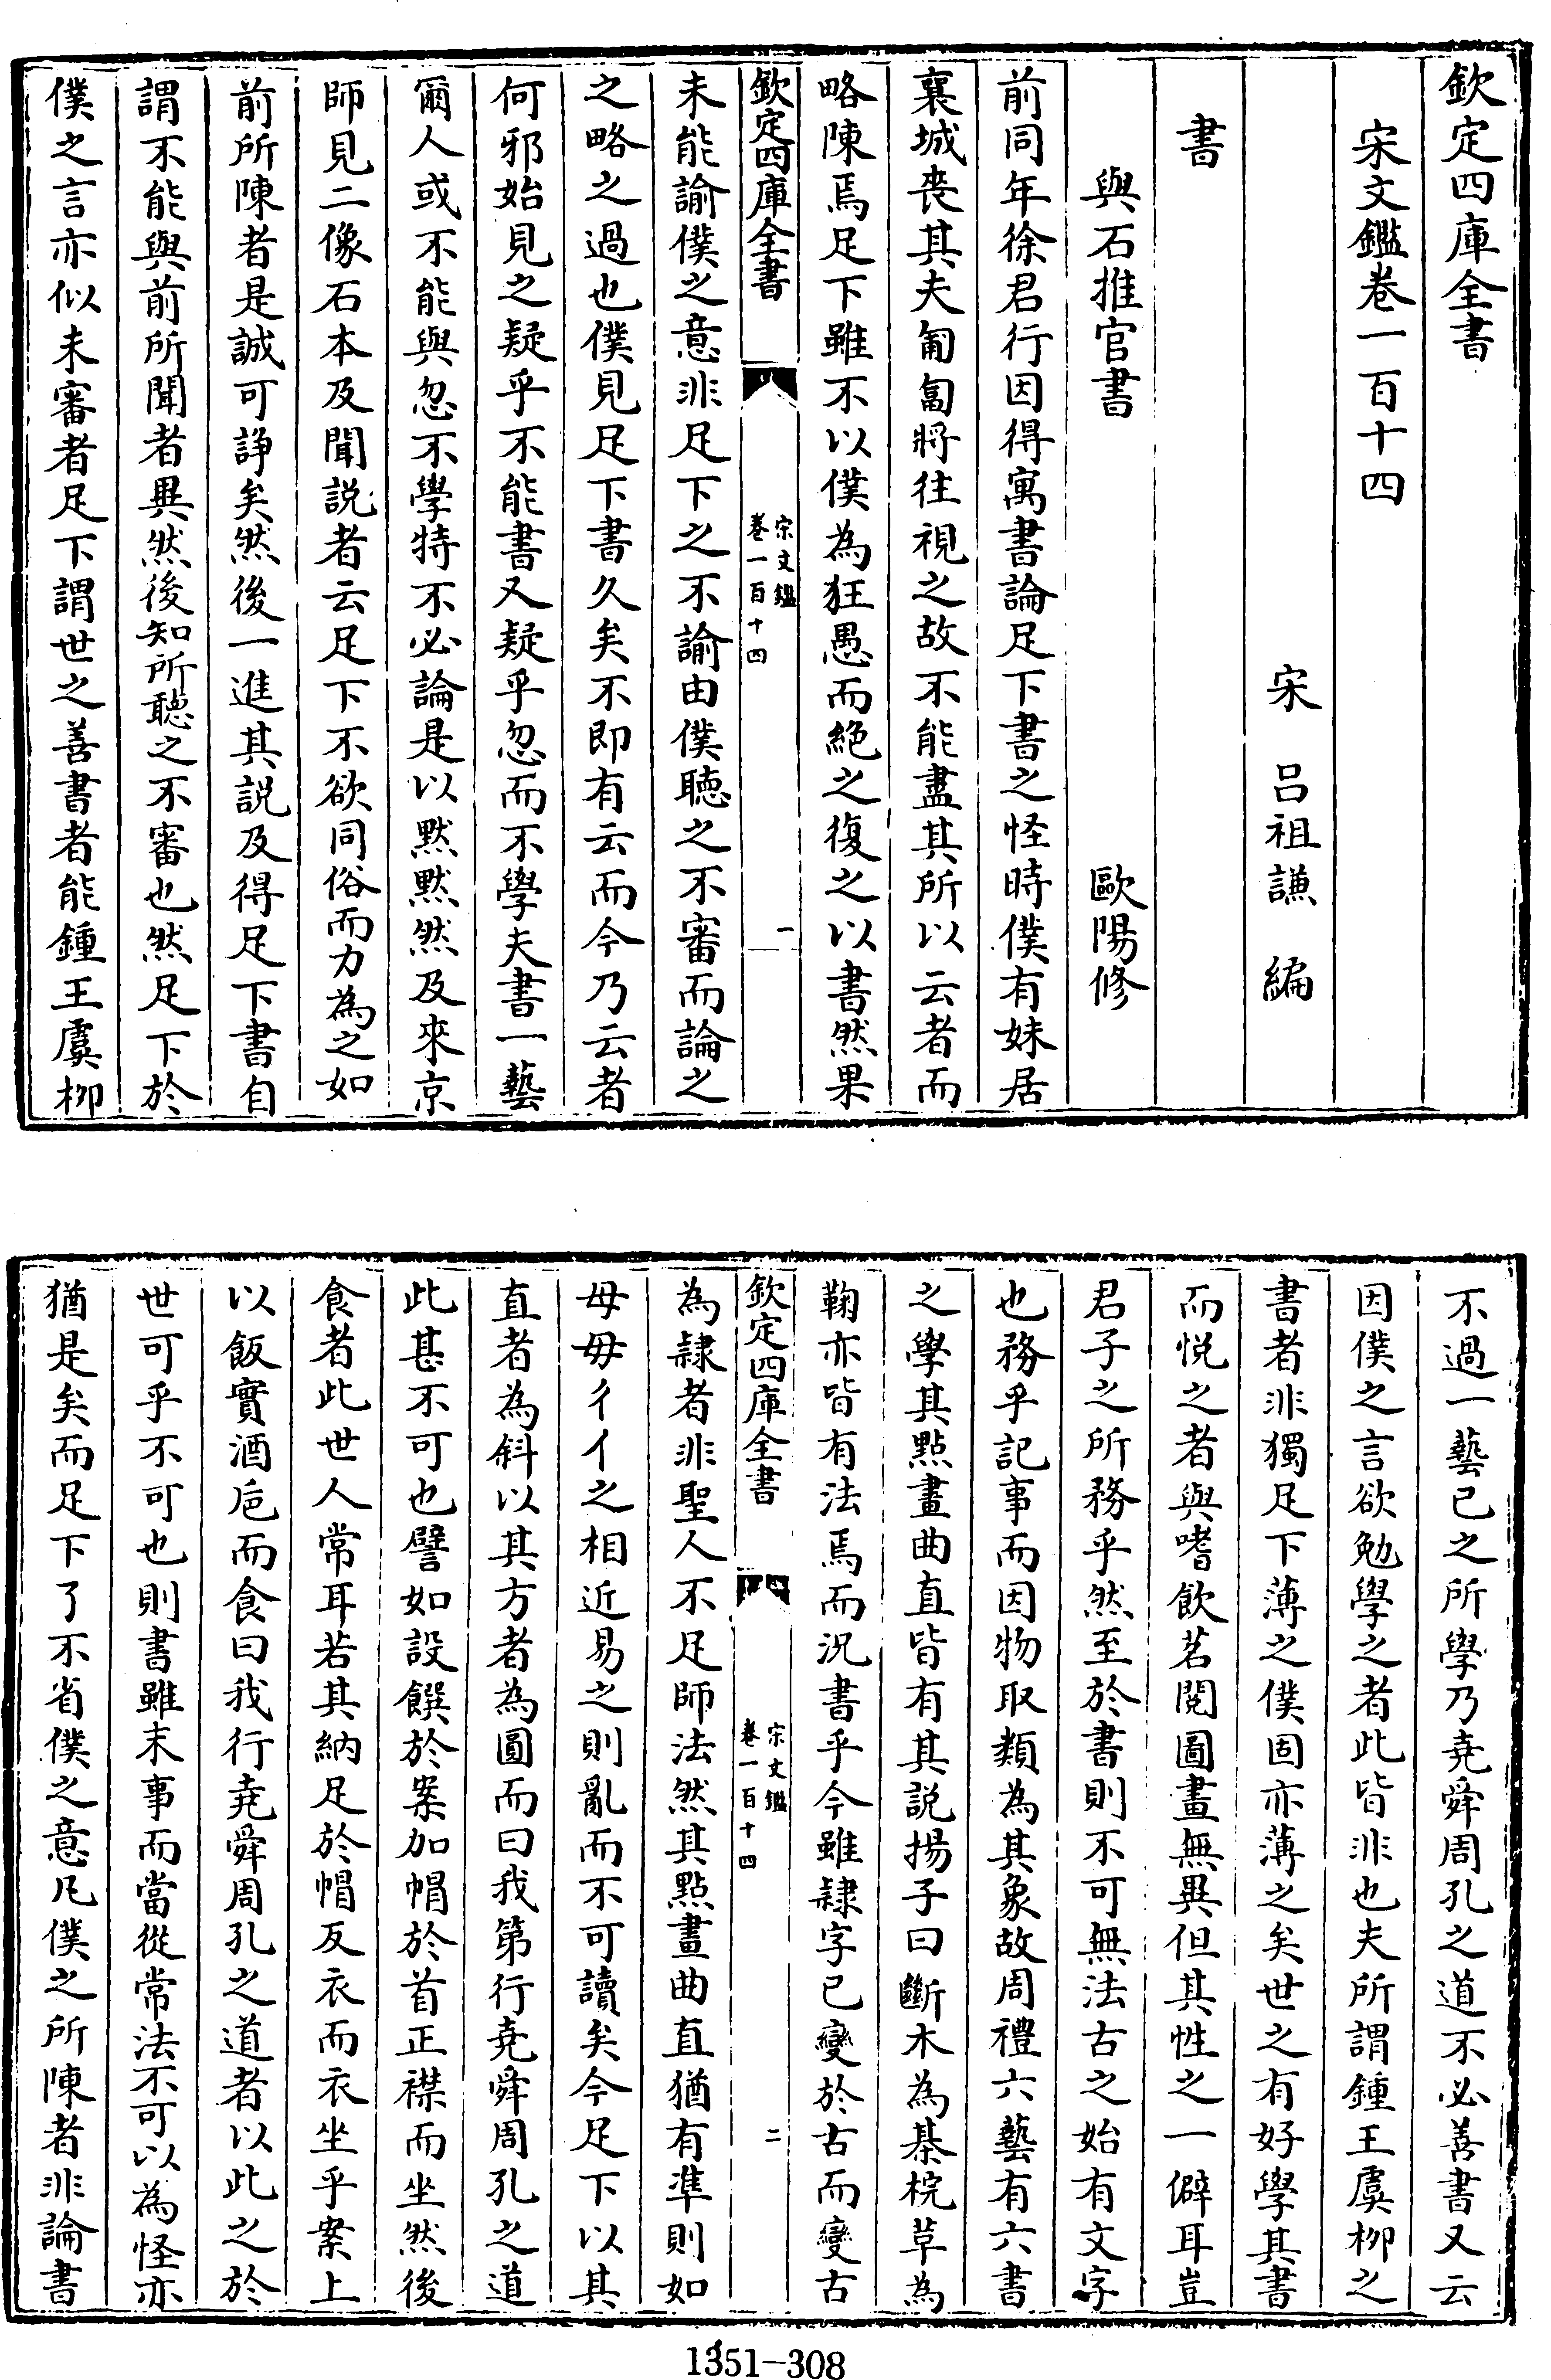 欽定四庫全書
宋文鑑卷一百十四
宋 呂祖謙 編
書
與石推官書 歐陽修
前同年徐君行因得寓書論足下書之怪時僕有妹居
襄城喪其夫匍匐將往視之故不能盡其所以云者而
略陳焉足下雖不以僕為狂愚而絶之復之以書然果
欽定四庫全書 宋文鑑 卷一百十四 一
未能諭僕之意非足下之不諭由僕聽之不審而論之
之略之過也僕見足下書久矣不即有云而今乃云者
何邪始見之疑乎不能書又疑乎忽而不學夫書一藝
爾人或不能與忽不學特不必論是以黙黙然及來京
師見二像石本及聞説者云足下不欲同俗而力為之如
前所陳者是誠可諍矣然後一進其説及得足下書自
謂不能與前所聞者異然後知所聽之不審也然足下於
僕之言亦似未審者足下謂世之善書者能鍾王虞柳
不過一藝已之所學乃堯舜周孔之道不必善書又云
因僕之言欲勉學之者此皆非也夫所謂鍾王虞柳之
書者非獨足下薄之僕固亦薄之矣世之有好學其書
而悦之者與嗜飲茗閲圖畫無異但其性之一僻耳豈
君子之所務乎然至於書則不可無法古之始有文字
也務乎記事而因物取類為其象故周禮六藝有六書
之學其點畫曲直皆有其説揚子曰斷木為棊梡革為
鞠亦皆有法焉而況書乎今雖隷字已變於古而變古
欽定四庫全書 宋文鑑 卷一百十四 二
為隷者非聖人不足師法然其點畫曲直猶有準則如
母毋彳亻之相近易之則亂而不可讀矣今足下以其
直者為斜以其方者為圓而曰我第行堯舜周孔之道
此甚不可也譬如設饌於案加帽於首正襟而坐然後
食者此世人常耳若其納足於帽反衣而衣坐乎案上
以飯實酒巵而食曰我行堯舜周孔之道者以此之於
世可乎不可也則書雖末事而當從常法不可以為怪亦
猶是矣而足下了不省僕之意凡僕之所陳者非論書
1351-308